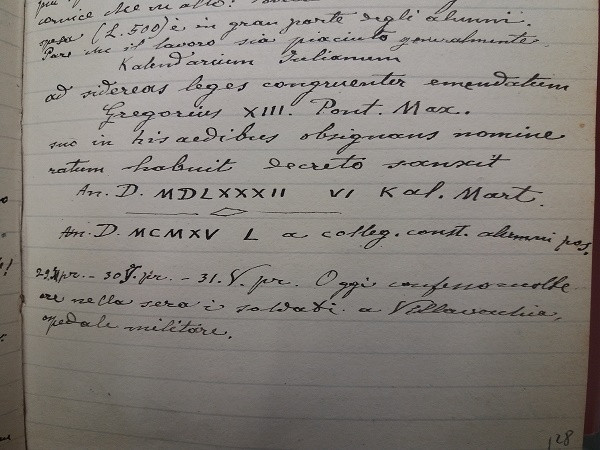 cornice che in alto.
spesa (L. 500) è in gran parte degli alunni.
Pare che il lavoro sia piaciuto generalmente.
Kalendarium Iulianum
ad sidereas leges congruenter emendatum
Gregorius XIII. Pont. Max.
suo in his aedibus obsignans nomine
ratum habuit decreto sanxit
An. D. MDLXXXII VI Kal. Mart.
An. D. MCMXV L a colleg. const. alumni pos.
pr. - 30 V. pr. - 31. V. pr. Oggi
nella sera i soldati a Villavecchia,
ospedale militare.
128